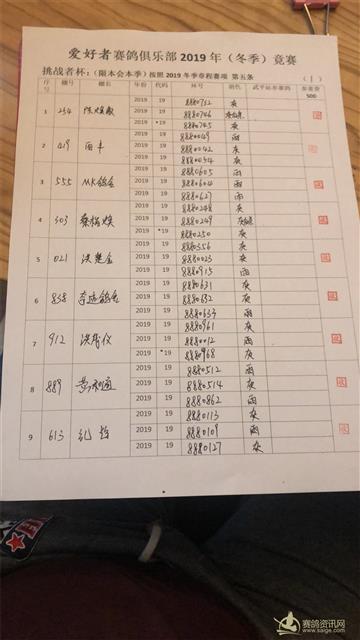 爱好者赛鸽俱乐部 2019 年（冬季）竞赛
挑战者杯：（限本会本季）按照 2019 冬季章程赛项 第五条 （1）
序号 棚号 棚名 年份 代码 环号 羽色 武平站参赛鸽 参赛费 500
2019 19 8880762 灰
1 254 2019 19 8880746
2019 *19 8880745 灰
2019 19 8880049 雨
2 019 雨丰 2019 19 8880042 灰
2019 19 8880054 灰
2019 19 8880605 雨
3 555 MK鸽舍 2019 19 8880604 雨
2019 19 8880627 雨
2019 19 灰
4 303 2019 19 8880249
2019 *19 8880250 灰
2019 19 8880356 灰
5 021 洪楚金 2019 19 8880023 灰
2019 19 8880915 雨
2019 19 8880631 灰
6 838 2019 19 8880632 灰
2019 19 8880633 雨
2019 19 8880961 灰
7 912 2019 19 8880012 雨
2019 *19 8880968 灰
2019 19 8880512 雨
8 889 2019 19 8880514 灰
2019 19 8880862 雨
2019 19 8880113 灰
9 613 2019 19 8880109 雨
2019 19 8880127 灰
赛鸽资讯网
www.saige.com